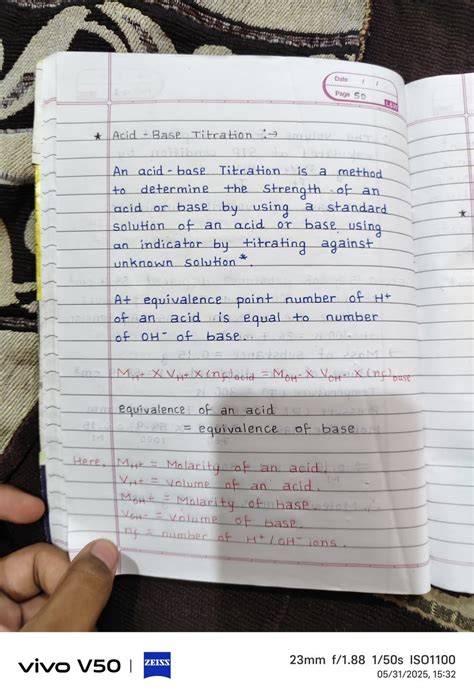 Date / /
Page 50
★ Acid-Base Titration :→
An acid-base Titration is a method
to determine the strength of an
acid or base by using a standard
solution of an acid or base using
an indicator by titrating against
unknown solution*.
At equivalence point number of H⁺
of an acid is equal to number
of OH⁻ of base.
M_H⁺ × V_H⁺ × (nf)acid = M_OH⁻ × V_OH⁻ × (nf)base
equivalence of an acid
= equivalence of base
Here, M_H⁺ = Molarity of an acid.
V_H⁺ = volume of an acid.
M_OH⁻ = Molarity of base.
V_OH⁻ = volume of base.
nf = number of H⁺/OH⁻ ions.
vivo V50 | ZEISS
23mm f/1.88 1/50s ISO1100
05/31/2025, 15:32